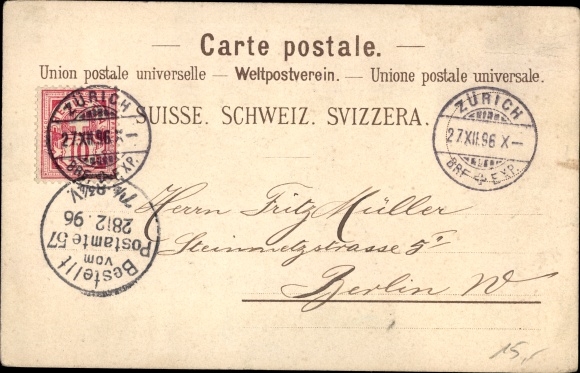 — Carte postale. —
Union postale universelle — Weltpostverein. — Unione postale universale.
SUISSE. SCHWEIZ. SVIZZERA.
ZÜRICH
27.XII.96.X—
BRF. EXP.
ZÜRICH
27.XII.96 X—
BRF. EXP.
10
Bestellt
vom
Postamte 57
28/12. 96
Herrn Fritz Müller
Steinmetzstrasse 5
Berlin W
15,-